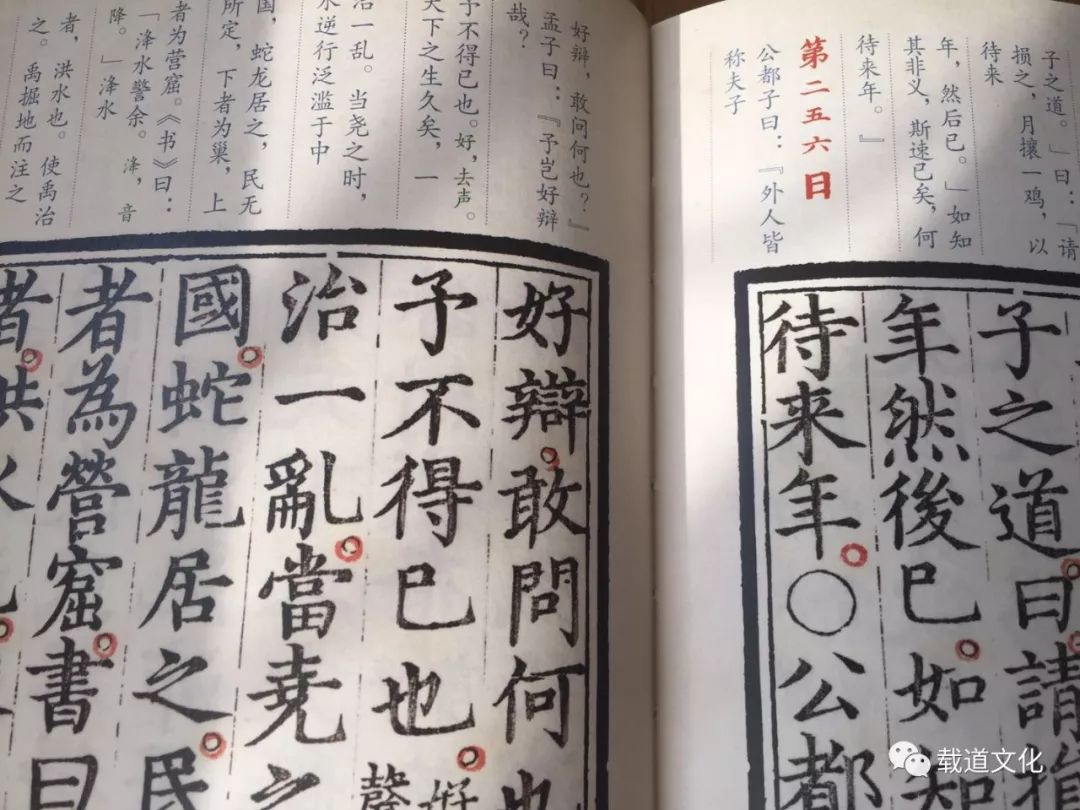 子之道。」曰：「请
损之，月攘一鸡，以
待来
年，然后已。」如知
其非义，斯速已矣，何
待来年。』
第二五六日
公都子曰：『外人皆
称夫子
子之道曰請
年然後已如知
待来年○公都
好辩，敢问何也？』
孟子曰：『予岂好辩
哉？
予不得已也。好，去声。
天下之生久矣，一
治一乱。当尧之时，
水逆行泛滥于中
国，蛇龙居之，民无
所定，下者为巢，上
者为营窟。《书》曰：
「洚水警余。洚，音
降。」洚水
者，洪水也。使禹治
之。禹掘地而注之
好辯敢問何也
予不得已也好聲
治一亂當堯之
國蛇龍居之民
者為營窟書曰
者洪水
载道文化